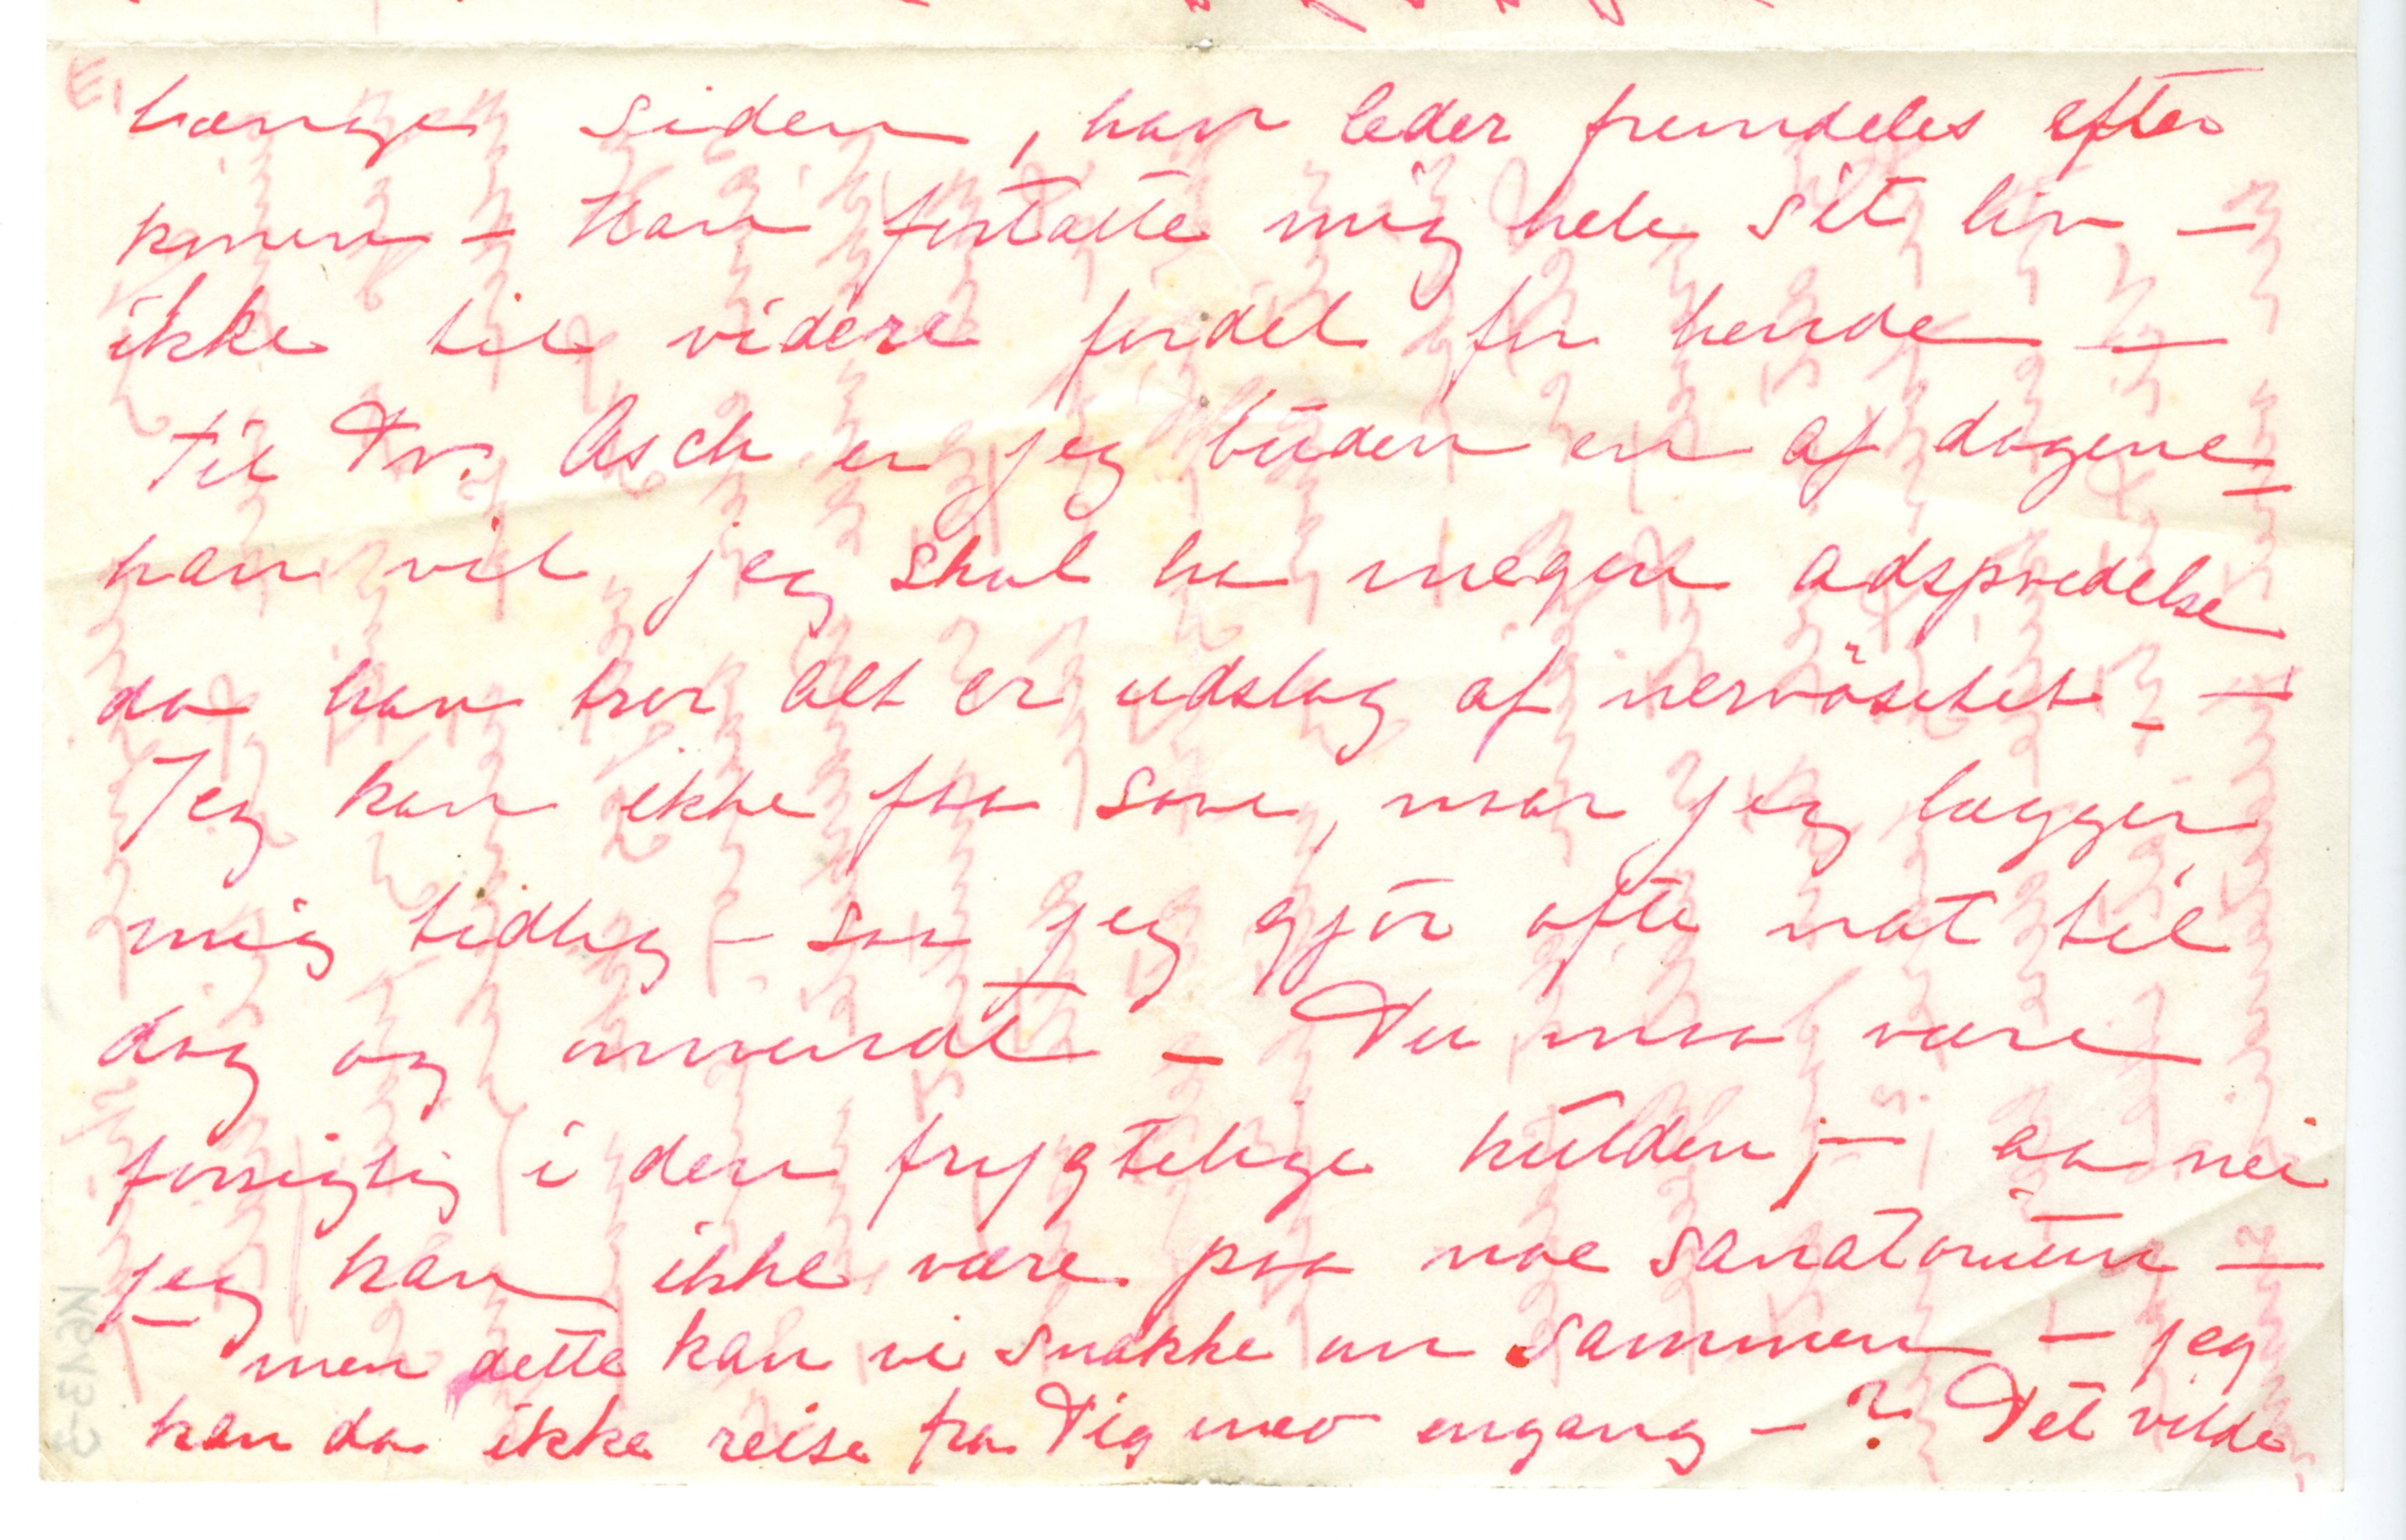 længe siden, han leder fremdeles efter
konen – Han fortalte mig hele sit liv –
ikke til videre fordel for hende –
til Dr. Asch er jeg buden en af dagene –
han vil jeg skal ha megen adspredelse
da han tror alt er udslag af nervøsitet – –
Jeg kan ikke faa sove, naar jeg lægger
mig tidlig – saa jeg gjör ofte nat til
dag og omvendt – Du maa være
forsigtig i den frygtelige kulden; – aa nei
jeg kan ikke være paa noe sanatorium –
men dette kan vi snakke om sammen – jeg
kan da ikke reise fra Dig med engang – ? Det vilde